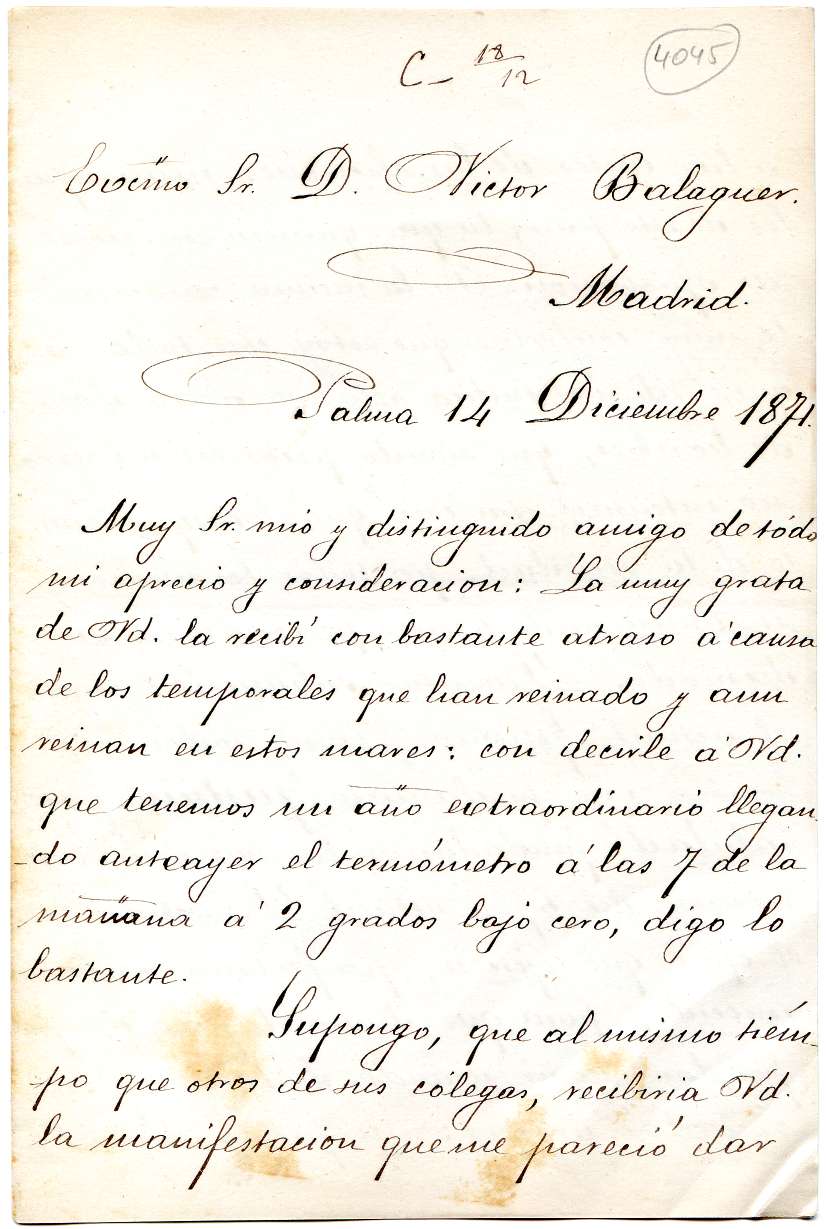 C- 18/12
4045
Excmo Sr. D. Victor Balaguer.
Madrid.
Palma 14 Diciembre 1871.
Muy Sr. mio y distinguido amigo de tódo
mi aprecio y consideracion: La muy grata
de Vd. la recibí con bastante atraso á causa
de los temporales que han reinado y aun
reinan en estos mares: con decirle á Vd.
que tenemos un año extraordinario llegan-
-do anteayer el termómetro á las 7 de la
mañana á 2 grados bajo cero, digo lo
bastante.
Supongo, que al mismo tiém-
-po que otros de sus cólegas, recibiria Vd.
la manifestacion que me pareció dar